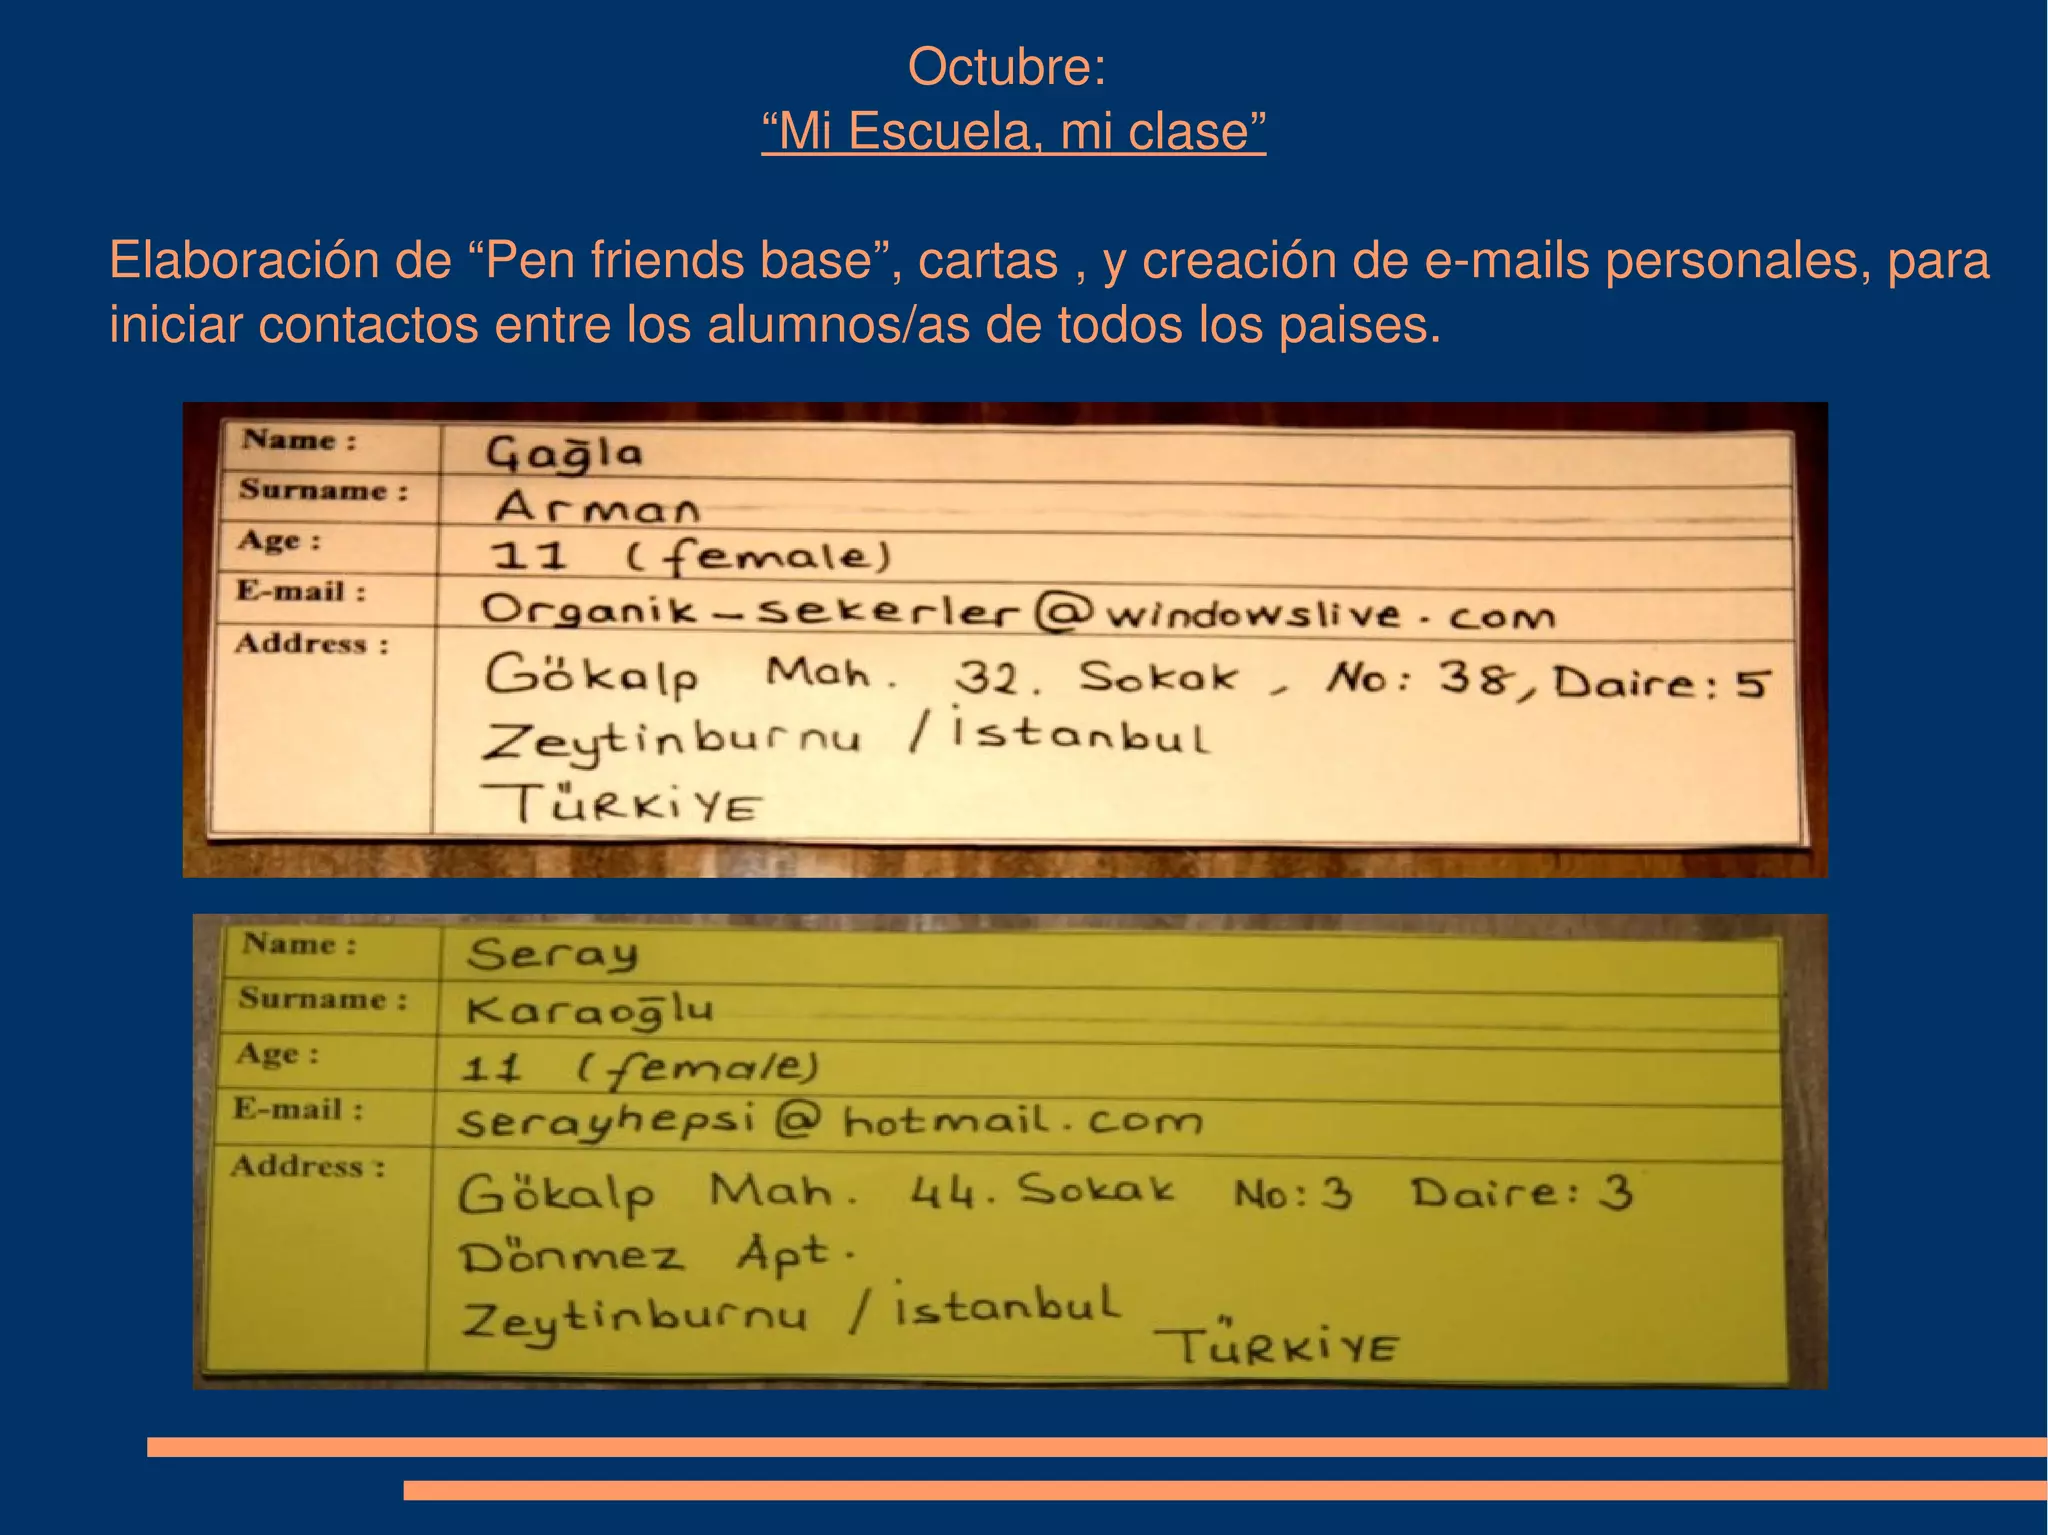 Octubre:
“Mi Escuela, mi clase”
Elaboración de “Pen friends base”, cartas , y creación de e-mails personales, para
iniciar contactos entre los alumnos/as de todos los paises.
Name : Çağla
Surname : Arman
Age : 11 (female)
E-mail : Organik-sekerler@windowslive.com
Address : Gökalp Mah. 32. Sokak, No: 38, Daire: 5
Zeytinburnu / İstanbul
TÜRKİYE
Name : Seray
Surname : Karaoğlu
Age : 11 (female)
E-mail : serayhepsi@hotmail.com
Address : Gökalp Mah. 44. Sokak No: 3 Daire: 3
Dönmez Apt.
Zeytinburnu / istanbul
TÜRKİYE